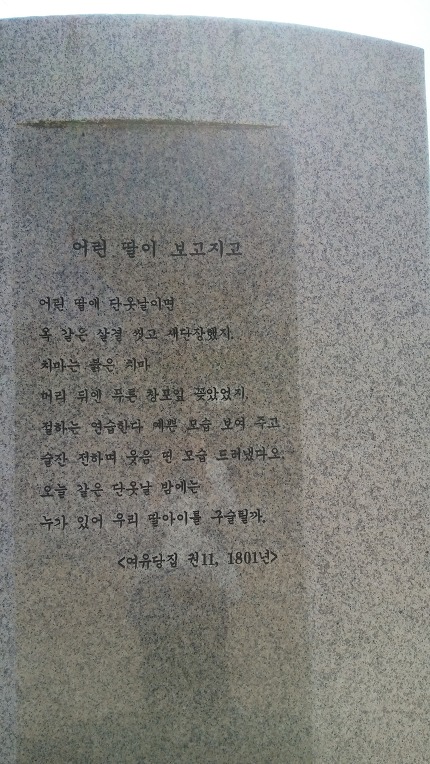 어린 딸이 보고지고
어린 딸애 단옷날이면
옥 같은 살결 씻고 새단장했지.
치마는 붉은 치마
머리 뒤엔 푸른 창포잎 꽂았었지.
절하는 연습한다 예쁜 모습 보여 주고
술잔 전하며 웃음 띤 모습 드러냈다오.
오늘 같은 단옷날 밤에는
누가 있어 우리 딸아이를 구슬릴까.
<여유당집 권11, 1801년>